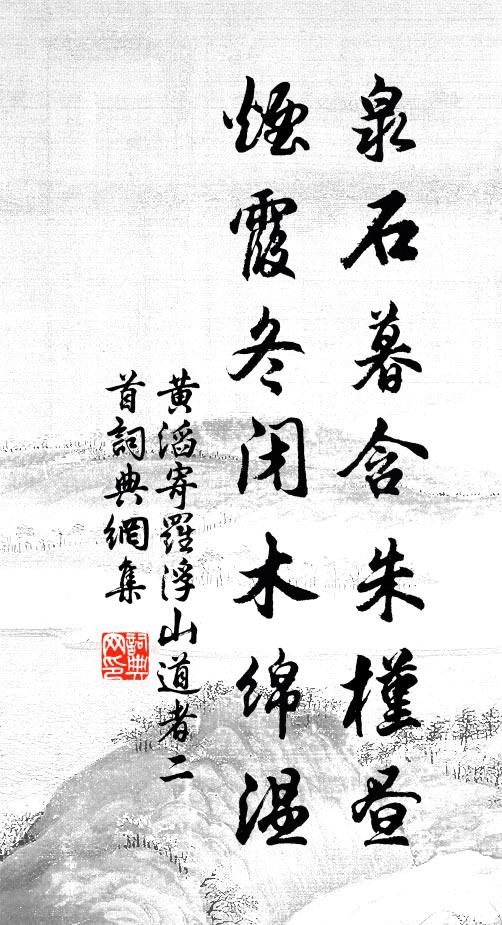 泉石暮含朱槿昼
煙霞冬闭木绵温
黄滔寄羅浮山道者二
首詞典網集
詞典
网印